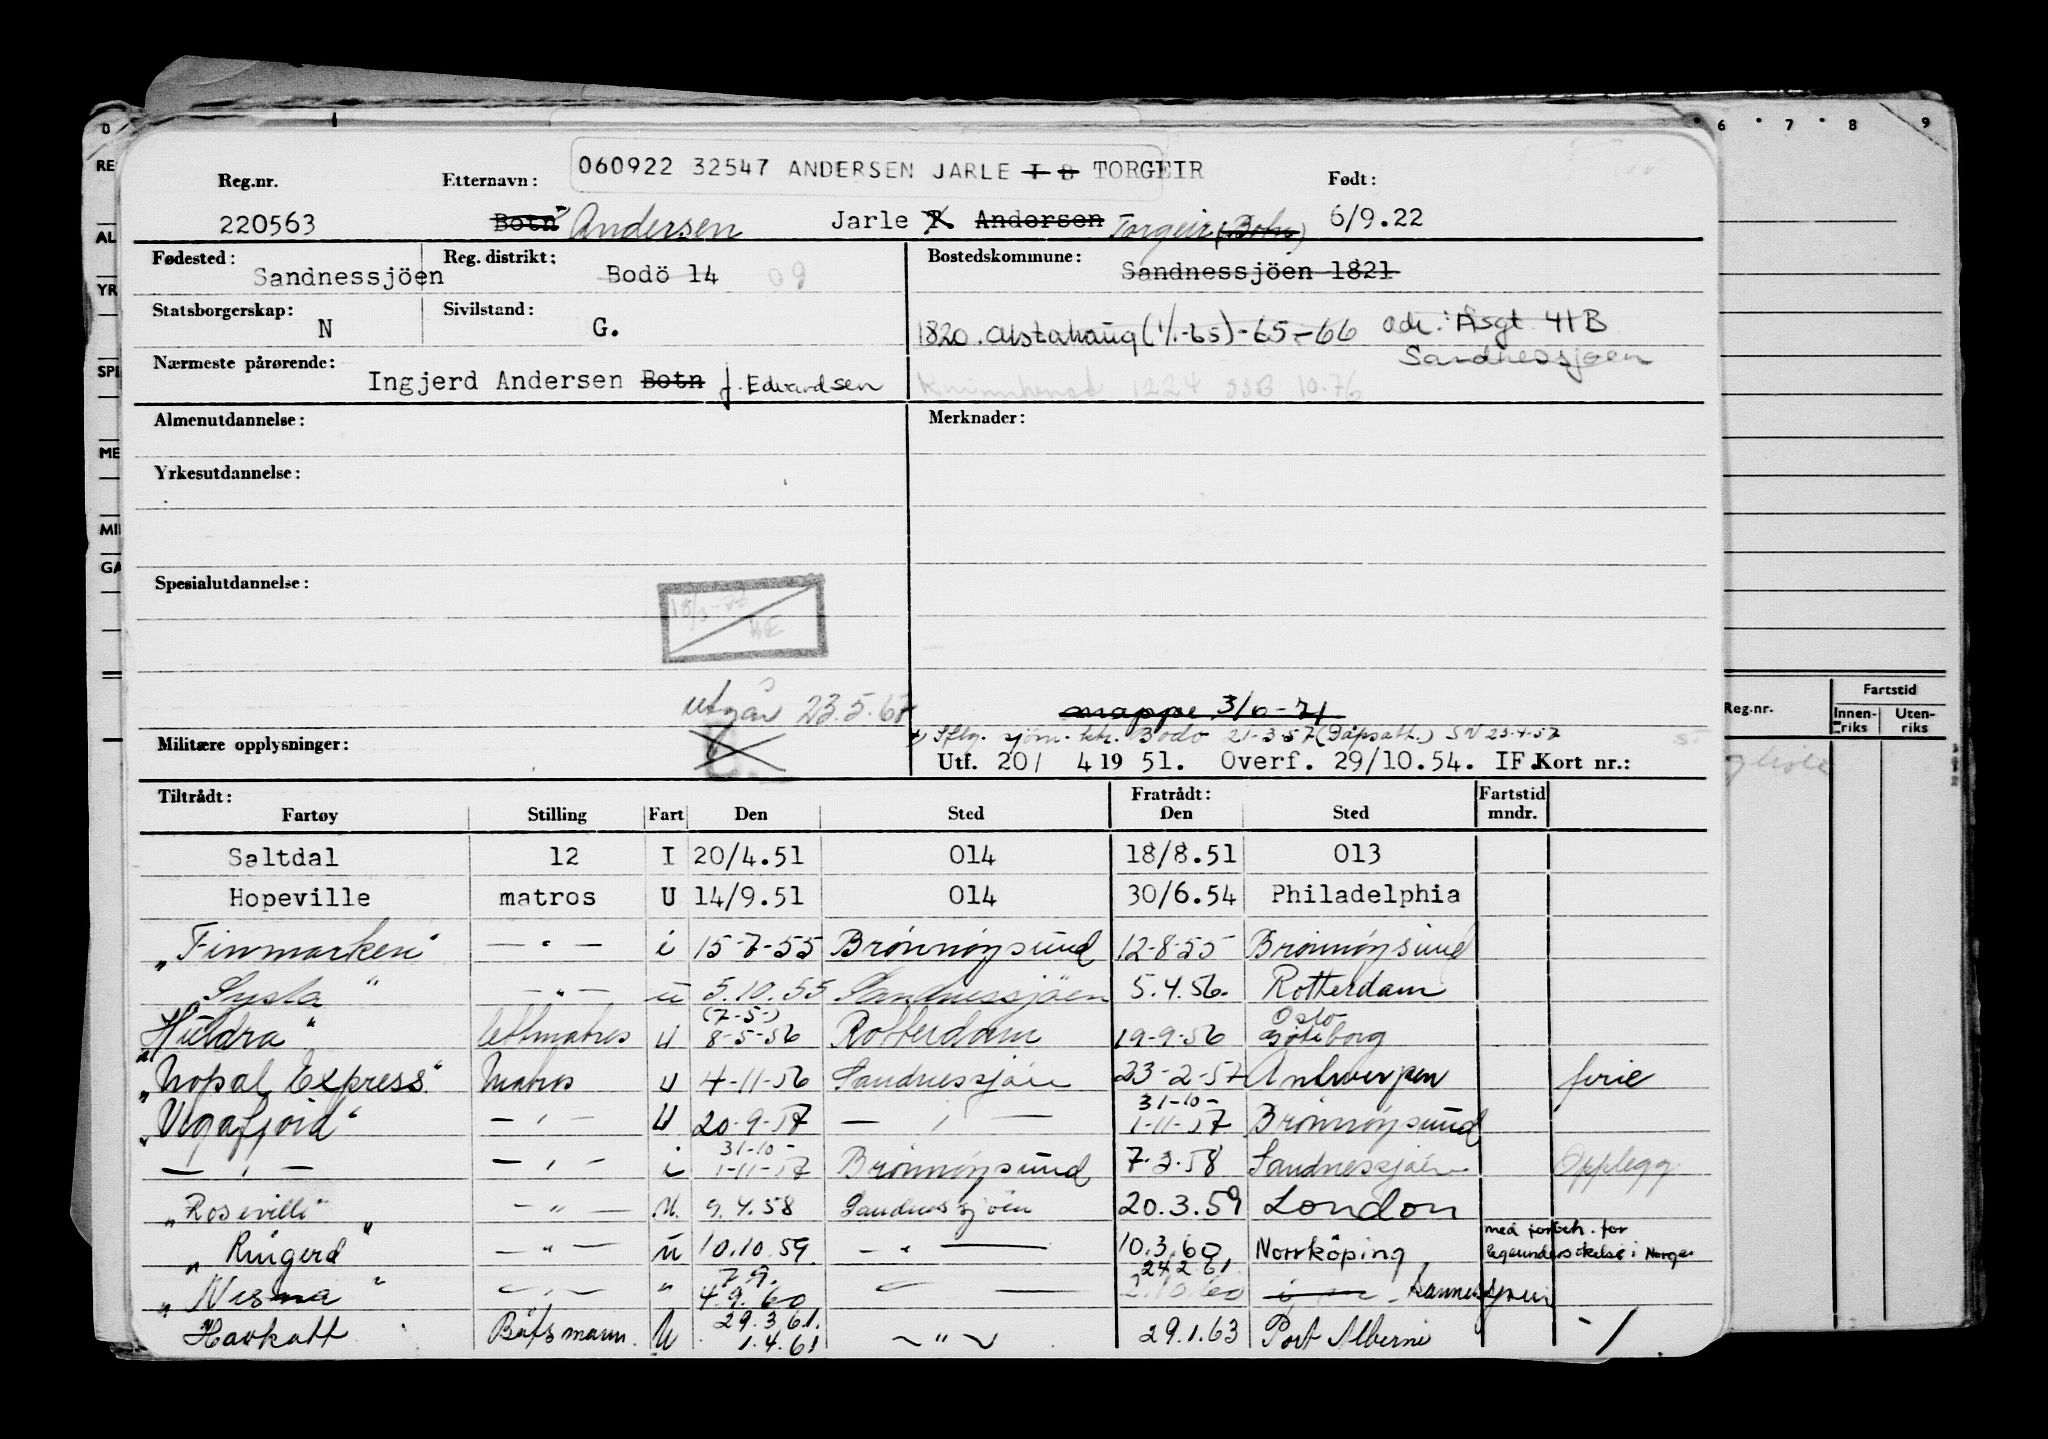 060922 32547 ANDERSEN JARLE I B TORGEIR
Reg.nr. Etternavn: Født:
220563 Botn Andersen Jarle T Andersen Torgeir (Botn) 6/9.22
Fødested: Reg. distrikt: Bostedskommune:
Sandnessjöen Bodö 14 09 Sandnessjöen 1821
Statsborgerskap: Sivilstand:
N G. 1820. Alstahaug (1/1-65)-65-66 adr.: Åsgt. 41B
Sandnessjøen
Nærmeste pårørende:
Ingjerd Andersen Botn f. Edvardsen 1224 SSB 10.76
Almenutdannelse: Merknader:
Yrkesutdannelse:
Spesialutdannelse:
utgår 23.5.67 mappe 3/6-71
Sflg. sjøm. ktr. Bodö 21-3-57 (Dåpsatt.) SN 23-4-57
Militære opplysninger: Utf. 20/ 4 19 51. Overf. 29/10.54. IF. Kort nr.:
Tiltrådt: Fratrådt: Fartstid
Fartøy Stilling Fart Den Sted Den Sted mndr.
Saltdal 12 I 20/4.51 014 18/8.51 013
Hopeville matros U 14/9.51 014 30/6.54 Philadelphia
"Finmarken" — " — i 15-7-55 Brønnøysund 12-8-55 Brønnøysund
Sysla " — " — u 5.10.55 Sandnessjöen 5.4.56. Rotterdam
(7-5-) Oslo
"Huldra" lettmatros U 8-5-56 Rotterdam 19-9-56 Göteborg
"Nopal Express" Matros U 4-11-56 Sandnessjöen 23-2-57 Antwerpen ferie
31-10-
"Vegafjord" — " — U 20-9-57 — " — 1-11-57 Brønnøysund
31-10-
— " — — " — i 1-11-57 Brønnøysund 7-3-58 Sandnessjöen Opplegg
"Roseville" — " — U. 9.4.58 Sandnessjöen 20.3.59 London
"Ringerd" — " — u 10.10.59. — " — 10.3.60 Norrköping med forbeh. for legeundersøkelse i Norge
7.9. 24.2.61.
"Nesma" — " — " 4.9.60 — " — 2.10.60 Sannessjøen
29.3.61.
"Havkatt Båtsmann. U 1.4.61 — " — 29.1.63 Port Alberni
0 6 7 8 9
RE
AL
YR
SPE
ME
MI
GA
Reg.nr. Fartstid
Innen-riks Uten-riks